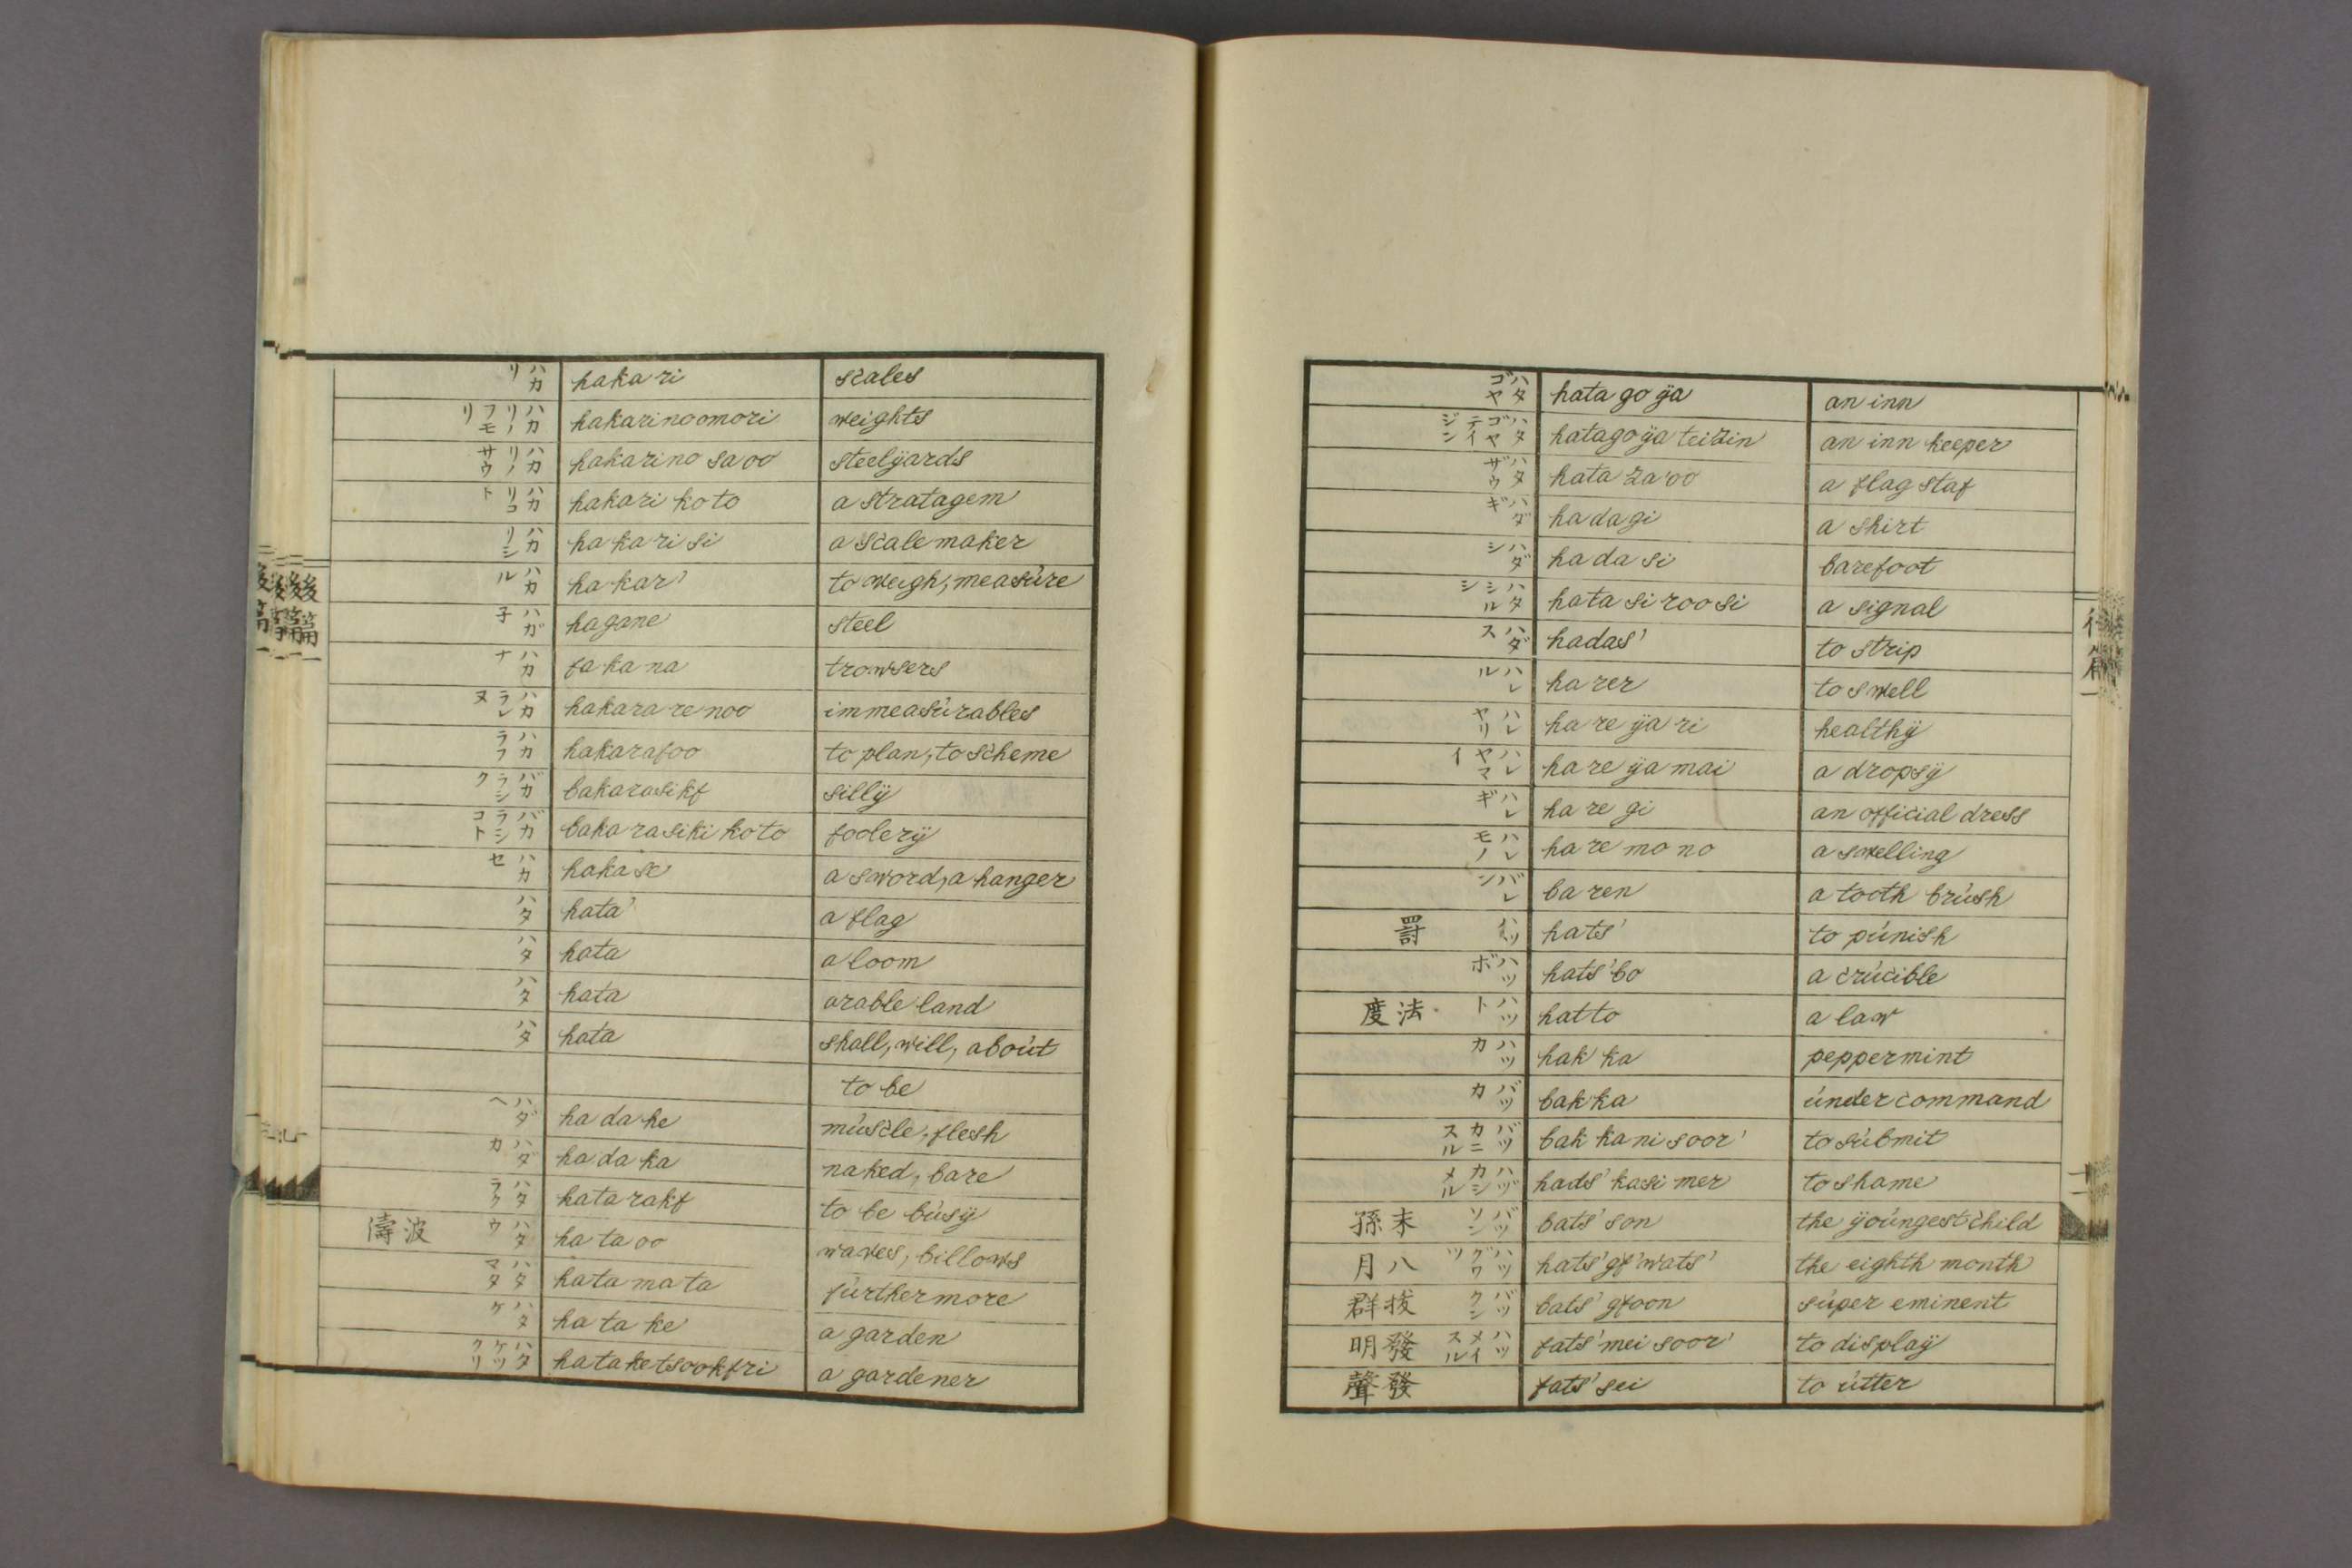 ハカリ hakari scales
ハカリノフモリ hakarinoomori weights
ハカリノサウ hakarino saoo steelÿards
ハカリコト hakari koto a stratagem
ハカリシ hakari si a scale maker
ハカル hakar' to weigh, measúre
ハガ子 hagane steel
ハカナ fakana trowsers
ハカラレヌ hakararenoo immeasúrables
ハカラフ hakarafoo to plan, to scheme
バカラシク bakarasikf sillÿ
バカラシコト bakarasiki koto foolerÿ
ハカセ hakase a sword, a hanger
ハタ hata' a flag
ハタ hata a loom
ハタ hata arable land
ハタ hata shall, will, aboút
to be
ハダヘ hadahe múscle, flesh
ハダカ hadaka naked, bare
ハタラク katarakf to be búsÿ
濤波 ハタウ hataoo waves, billows
ハタマタ hatamata fúrthermore
ハタケ hatake a garden
ハタケツクリ hataketsookfri a gardener
ハタゴヤ hatagoÿa an inn
ハタゴヤテイジン hatagoÿa teizin an inn keeper
ハタザウ hata za'oo a flag staf
ハダギ hadagi a shirt
ハダシ hadasi barefoot
ハタシルシ hata siroosi a signal
ハダス hadas' to strip
ハレル harer to swell
ハレヤリ hareÿari healthÿ
ハレヤマイ hareÿamai a dropsÿ
ハレギ haregi an official dress
ハレモノ haremono a swelling
バレン baren a tooth brúsh
罸 ハツ hats' to púnish
ハツボ hats'bo a crúcible
度法 ハツト hatto a law
ハツカ hakka peppermint
バツカ bakka únder command
バツカニスル bakkani soor' to súbmit
ハヅカシメル hads'kasimer to shame
孫末 バツソン bats'son the ÿoúngest child
月八 ハツグワツ hats'gf'wats' the eighth month
群拔 バツクン bats'gfoon súper eminent
明發 ハツメイスル fats'mei soor' to displaÿ
聲發 fats'sei to útter